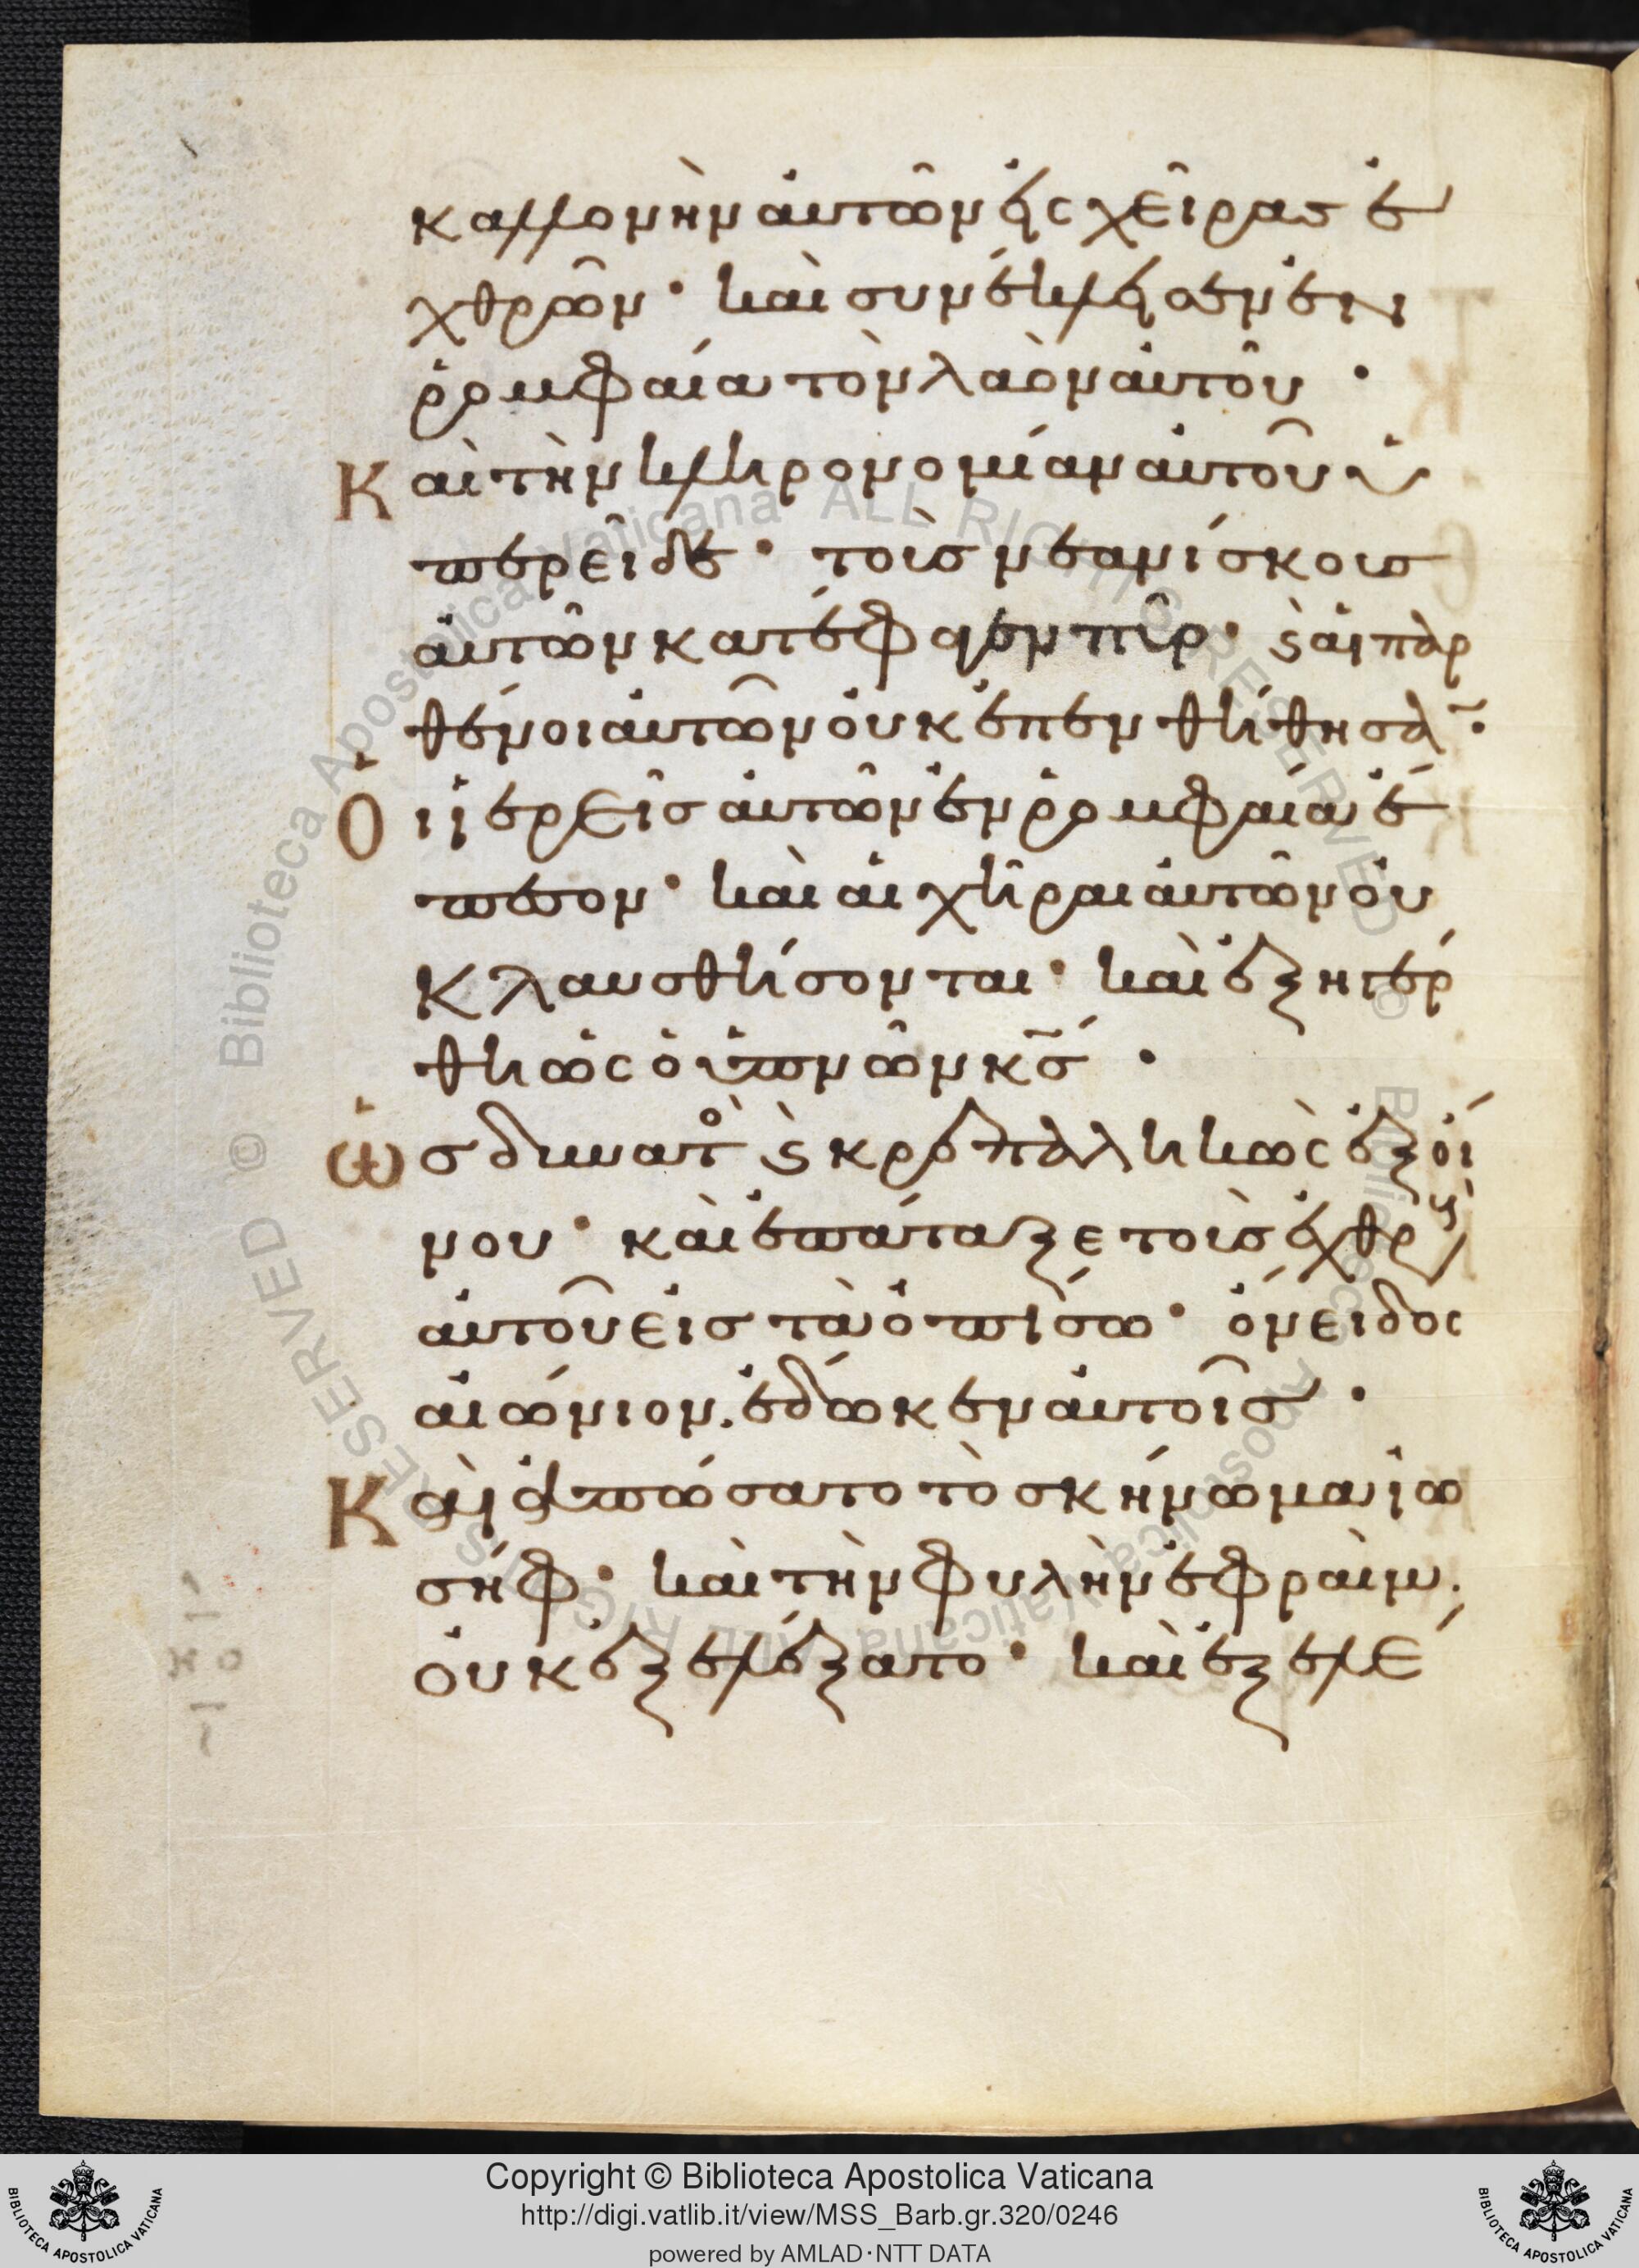 καλλονὴν αὐτῶν εἰς χεῖρας ἐ
χθρῶν· καὶ συνέκλεισεν ἐν
ῥομφαία τὸν λαὸν αὐτοῦ·
Καὶ τὴν κληρονομίαν αὐτοῦ ὑ
περεῖδε· τοὺς νεανίσκους
αὐτῶν κατέφαγεν πῦρ· ϛ αἱ παρ
θένοι αὐτῶν οὐκ ἐπενθήθησαν·
Οἱ ἱερεῖς αὐτῶν ἐν ῥομφαία ἔ
πεσον· καὶ αἱ χῆραι αὐτῶν οὐ
κλαυσθήσονται· καὶ ἐξηγέρ
θη ὡς ὁ ὑπνῶν κ̅ς̅·
Ὡς δυνατὸς ϛ κεκραιπαληκὼς ἐξ οἴ
νου· καὶ ἐπάταξε τοὺς ἐχθροὺς
αὐτοῦ εἰς τὰ ὀπίσω· ὄνειδος
αἰώνιον ἔδωκεν αὐτοῖς·
Καὶ ἀπώσατο τὸ σκήνωμα ἰω
σήφ· καὶ τὴν φυλὴν ἐφραὶμ
οὐκ ἐξελέξατο· καὶ ἐξελέ
Copyright © Biblioteca Apostolica Vaticana
http://digi.vatlib.it/view/MSS_Barb.gr.320/0246
powered by AMLAD·NTT DATA
BIBLIOTECA APOSTOLICA VATICANA
BIBLIOTECA APOSTOLICA VATICANA